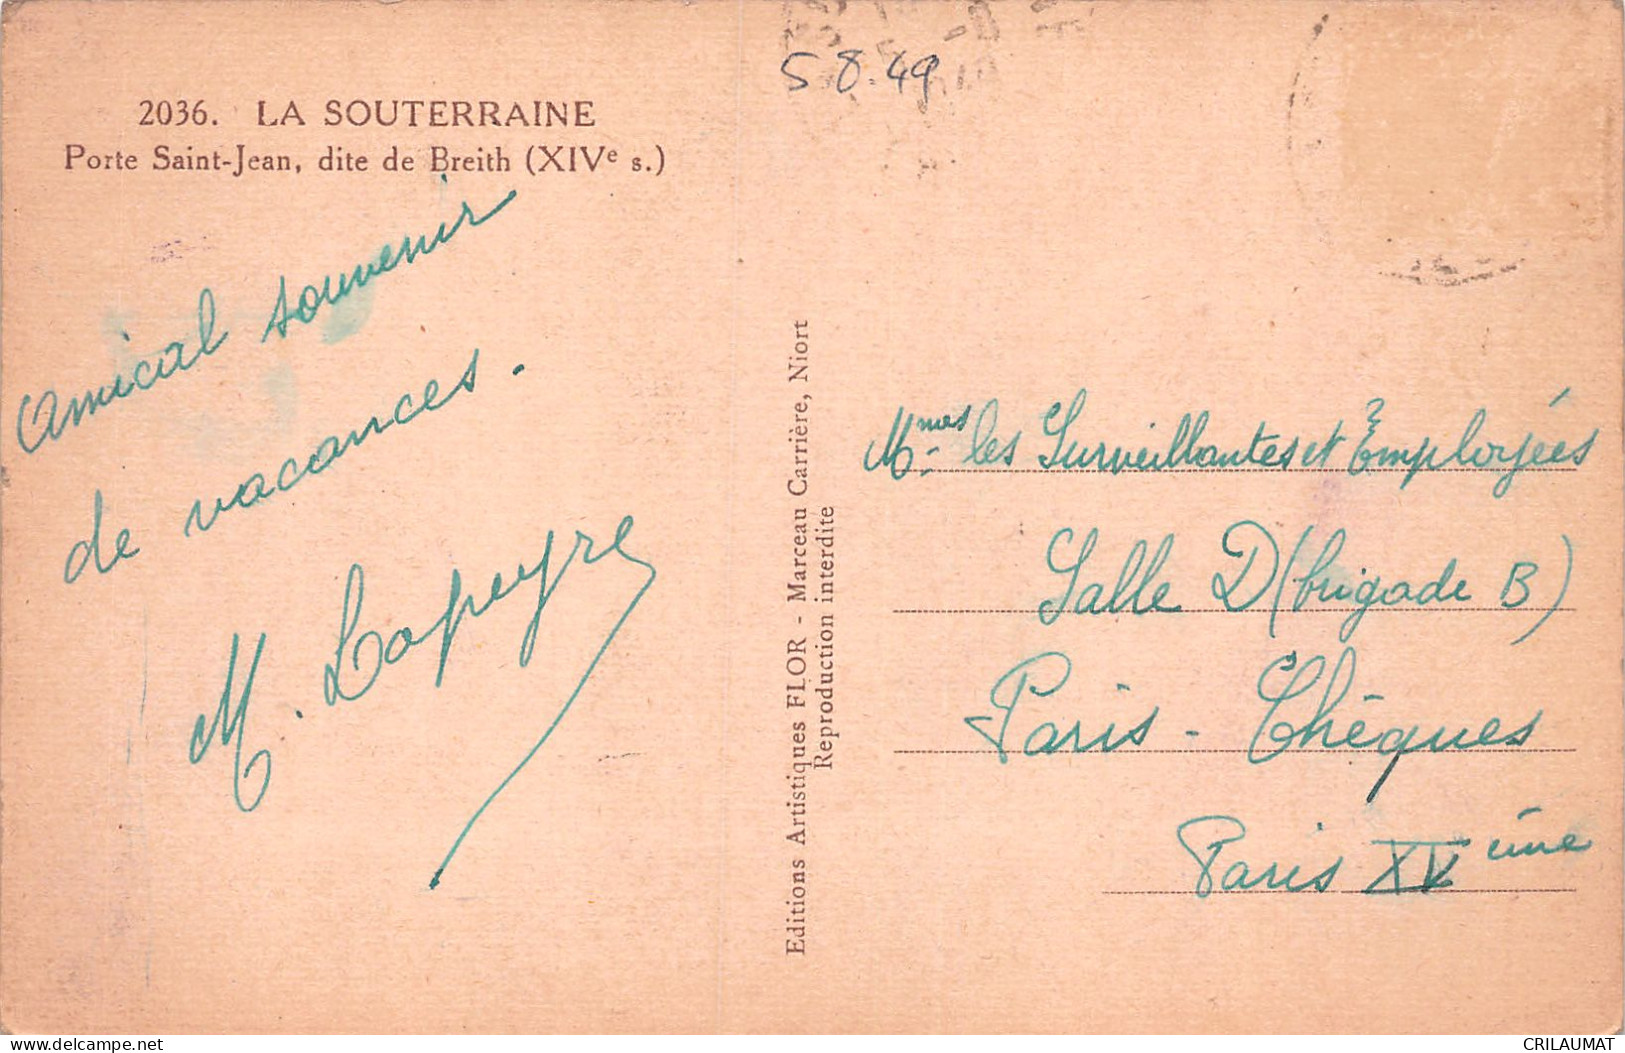 2036. LA SOUTERRAINE
Porte Saint-Jean, dite de Breith (XIVe s.)
5 8.49
Amical souvenir
de vacances.
M. Lapeyre
Editions Artistiques FLOR - Marceau Carrière, Niort
Reproduction interdite
Mmes les Surveillantes et Employées
Salle D (brigade B)
Paris - Chèques
Paris XV ème
delcampe.net
CRILAUMAT